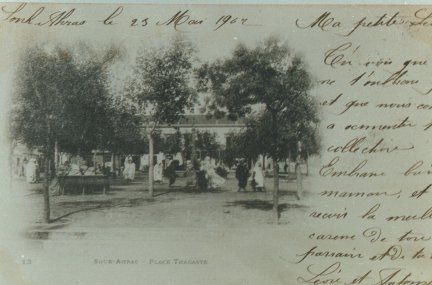 Souk Ahras le 23 Mai 1902
Ma petite
Tu vois que
je t'oublie
et que nous
a augmenter
collection
Embrasse
maman, et
reçois la meilleure
caresse de ton
parrain et de ta
et Antoine
13 SOUK-AHRAS – PLACE THAGASTE